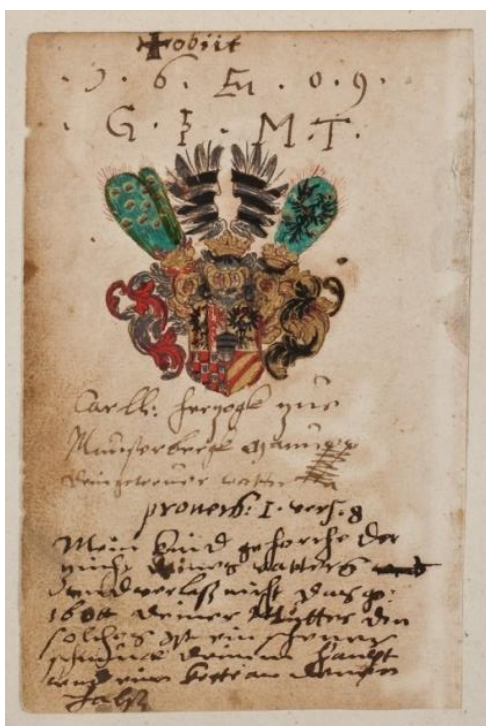 obiit
· 1 · 6 · En · 0 · 9 ·
· G · F · M · T ·
Carll: Herzogk zue
Munsterbergk manupp
dein getrewer vatter
proverb: 1. vers. 8
Mein Kind gehorche der
zucht deines vatters
Vnd verlass nicht das ge:
1604 deiner Mutter den
solches ist ein schener
schmuck deinem Haubt
vnd ein kette an deinem
Halss